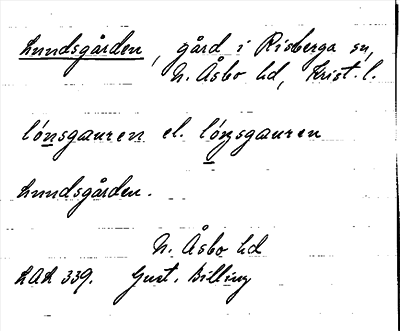 Lundsgården, gård i Risberga sn,
N. Åsbo hd, Krist. l.
lónsgauren el. lónsgauren
Lundsgården.
N. Åsbo hd
LAL 339. Gust. Billing